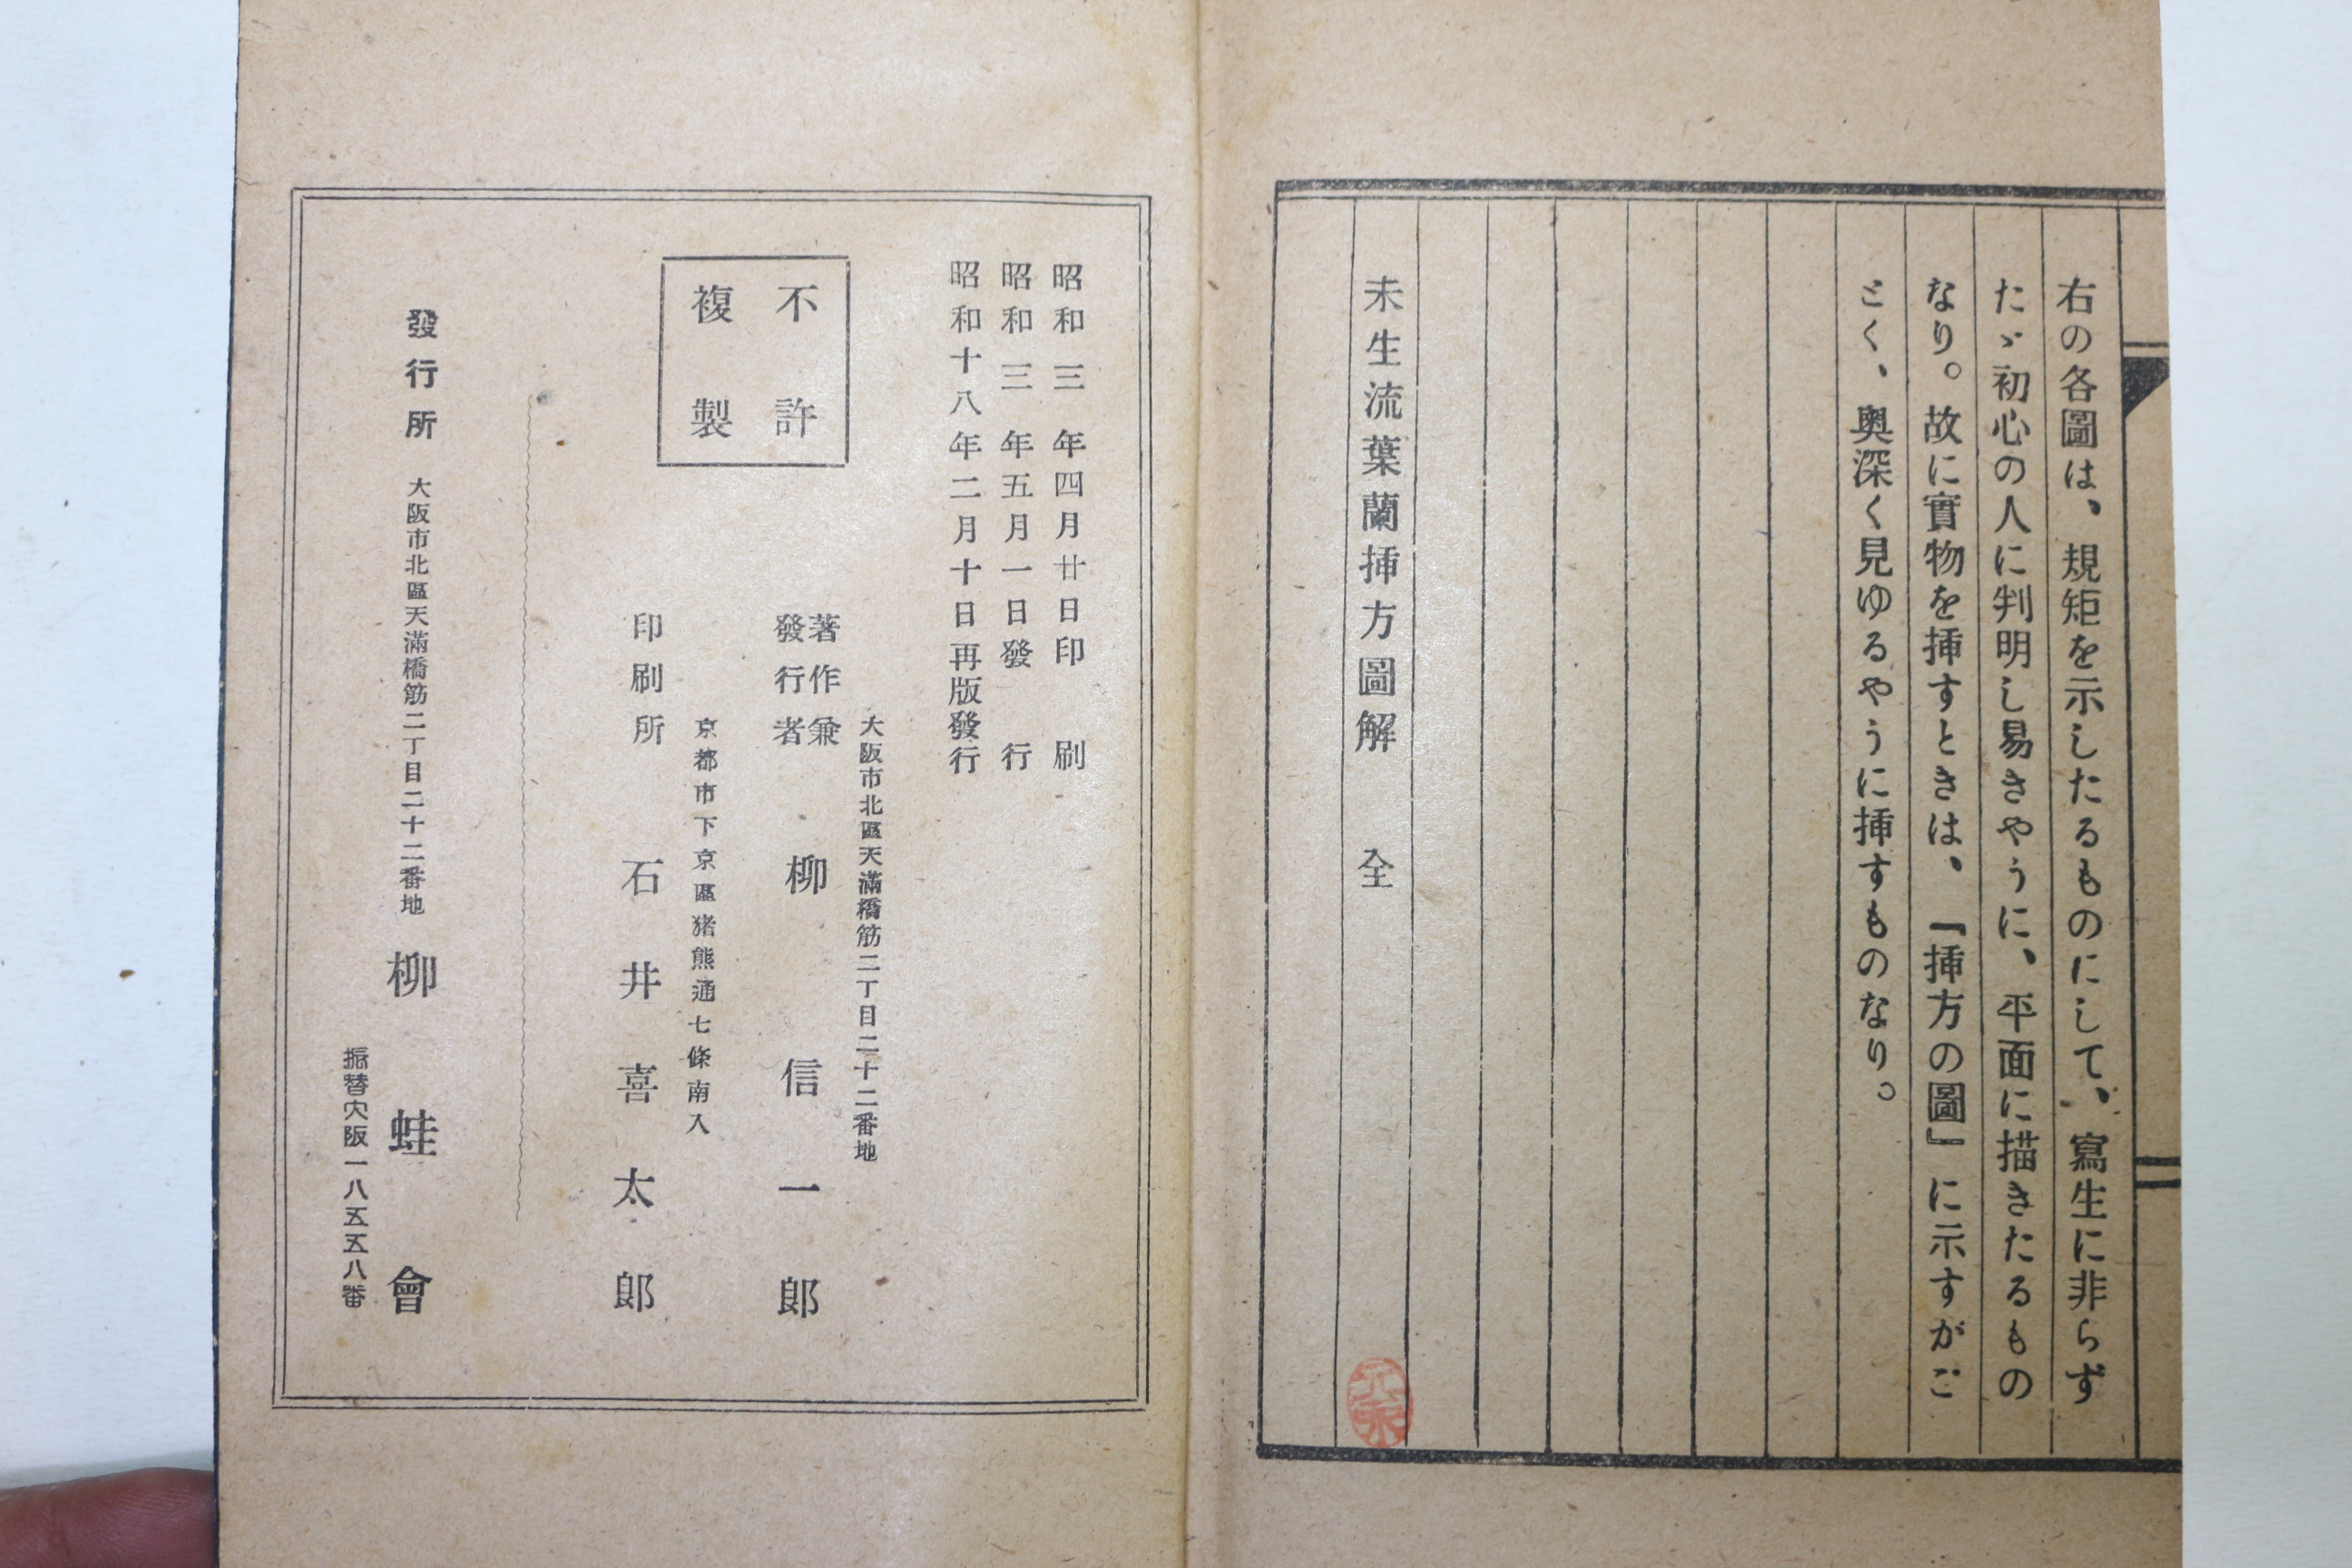 右の各圖は、規矩を示したるものにして、寫生に非らず
たゞ初心の人に判明し易きやうに、平面に描きたるもの
なり。故に實物を挿すときは、『挿方の圖』に示すがご
とく、奧深く見ゆるやうに挿すものなり。
未生流葉蘭挿方圖解 全
昭和三年四月廿日印刷
昭和三年五月一日發行
昭和十八年二月十日再版發行
不許
複製
大阪市北區天滿橋筋二丁目二十二番地
著作兼
發行者 柳信一郎
京都市下京區猪熊通七條南入
印刷所 石井喜太郎
發行所 大阪市北區天滿橋筋二丁目二十二番地 柳蛙會
振替大阪一八五五八番